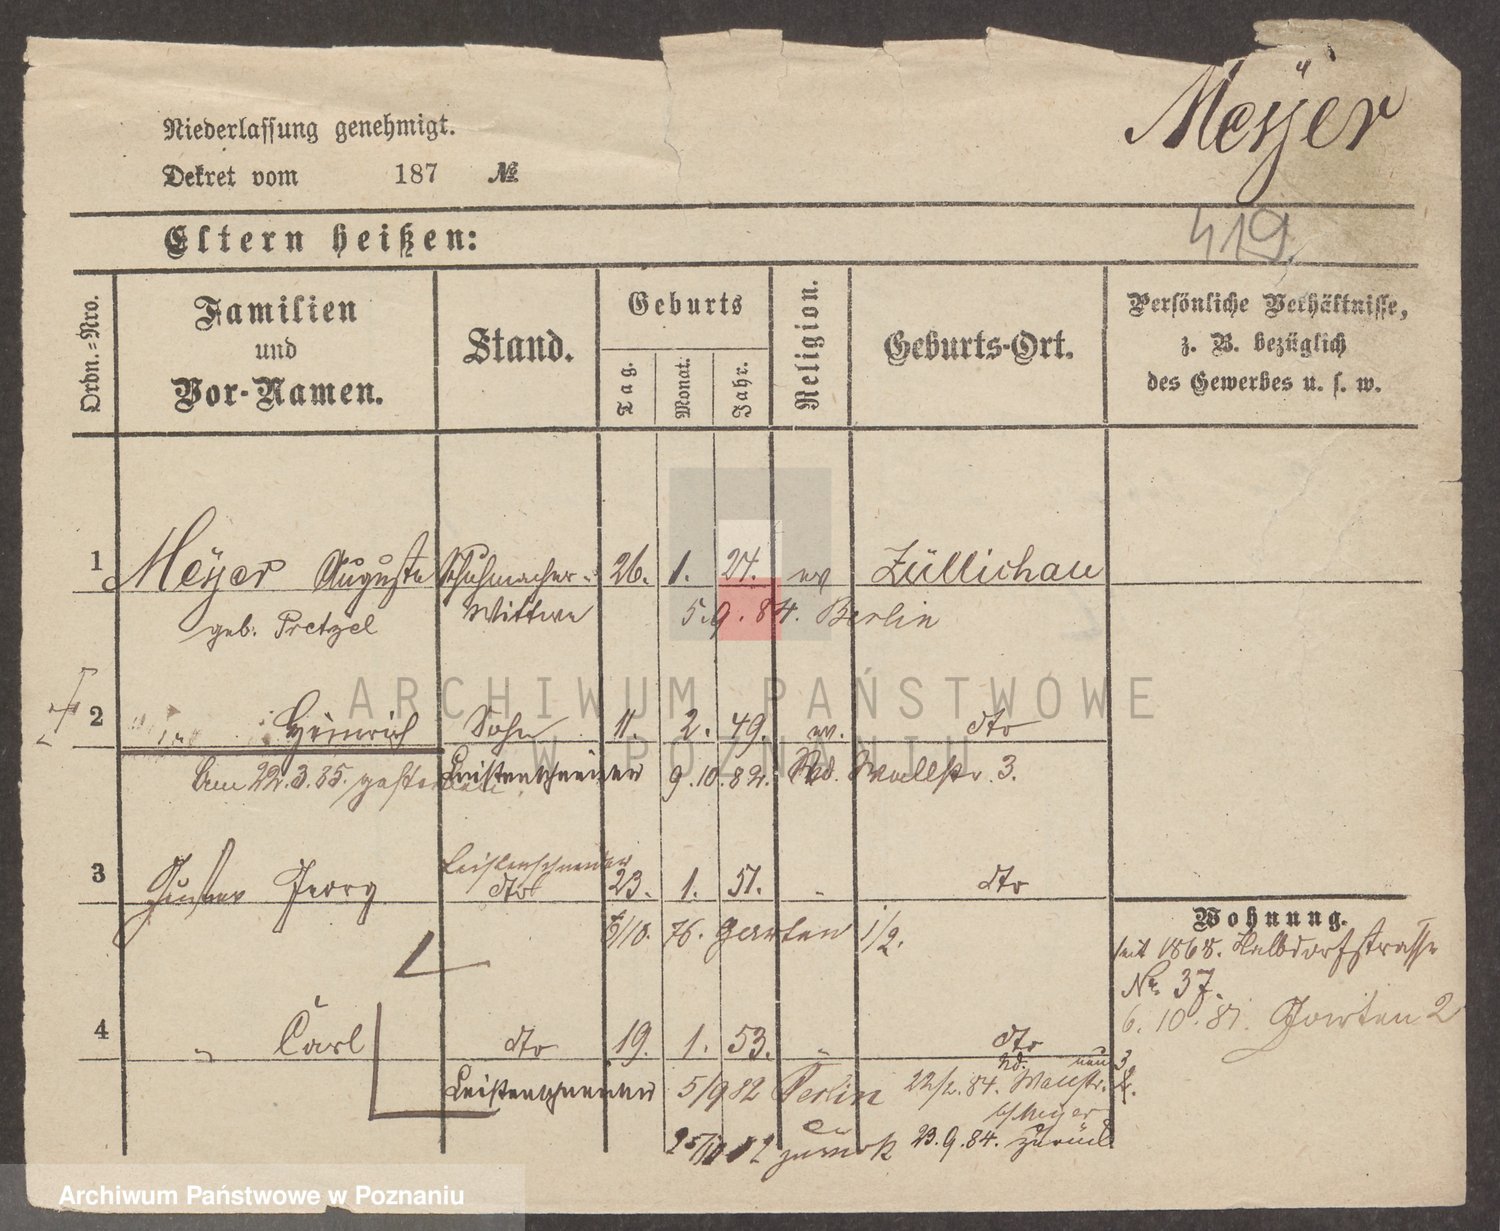 Meÿer
Niederlassung genehmigt.
Dekret vom 187 №
419.
Eltern heißen:
Ordn.=Nro.
Familien
und
Vor-Namen.
Stand.
Geburts
Tag.
Monat.
Jahr.
Religion.
Geburts-Ort.
Persönliche Verhältnisse,
z. B. bezüglich
des Gewerbes u. s. w.
1 Meÿer Auguste Schuhmacher- 26. 1. 24. ev Züllichau
geb. Pretzel Wittwe 5.9.84. Berlin
2 Heinrich Sohn 11. 2. 49. ev. dto
Am 22.3.85. gestorben. Leistenschneider 9.10.82. Wallstr. 3.
Leistenschneider
3 Gustav Georg dto 23. 1. 51. " dto
6/10. 76. Garten 1/2.
Wohnung.
seit 1868. Halbdorfstrasse
No. 37.
6. 10. 81. Garten 2
4 " Carl dto 19. 1. 53. " dto
Leistenschneider 5/9 82 Berlin 22/2. 84. Wallstr.
b/ Meyer
zurück 23.9.84. zurück
ARCHIWUM PAŃSTWOWE
W POZNANIU
Archiwum Państwowe w Poznaniu